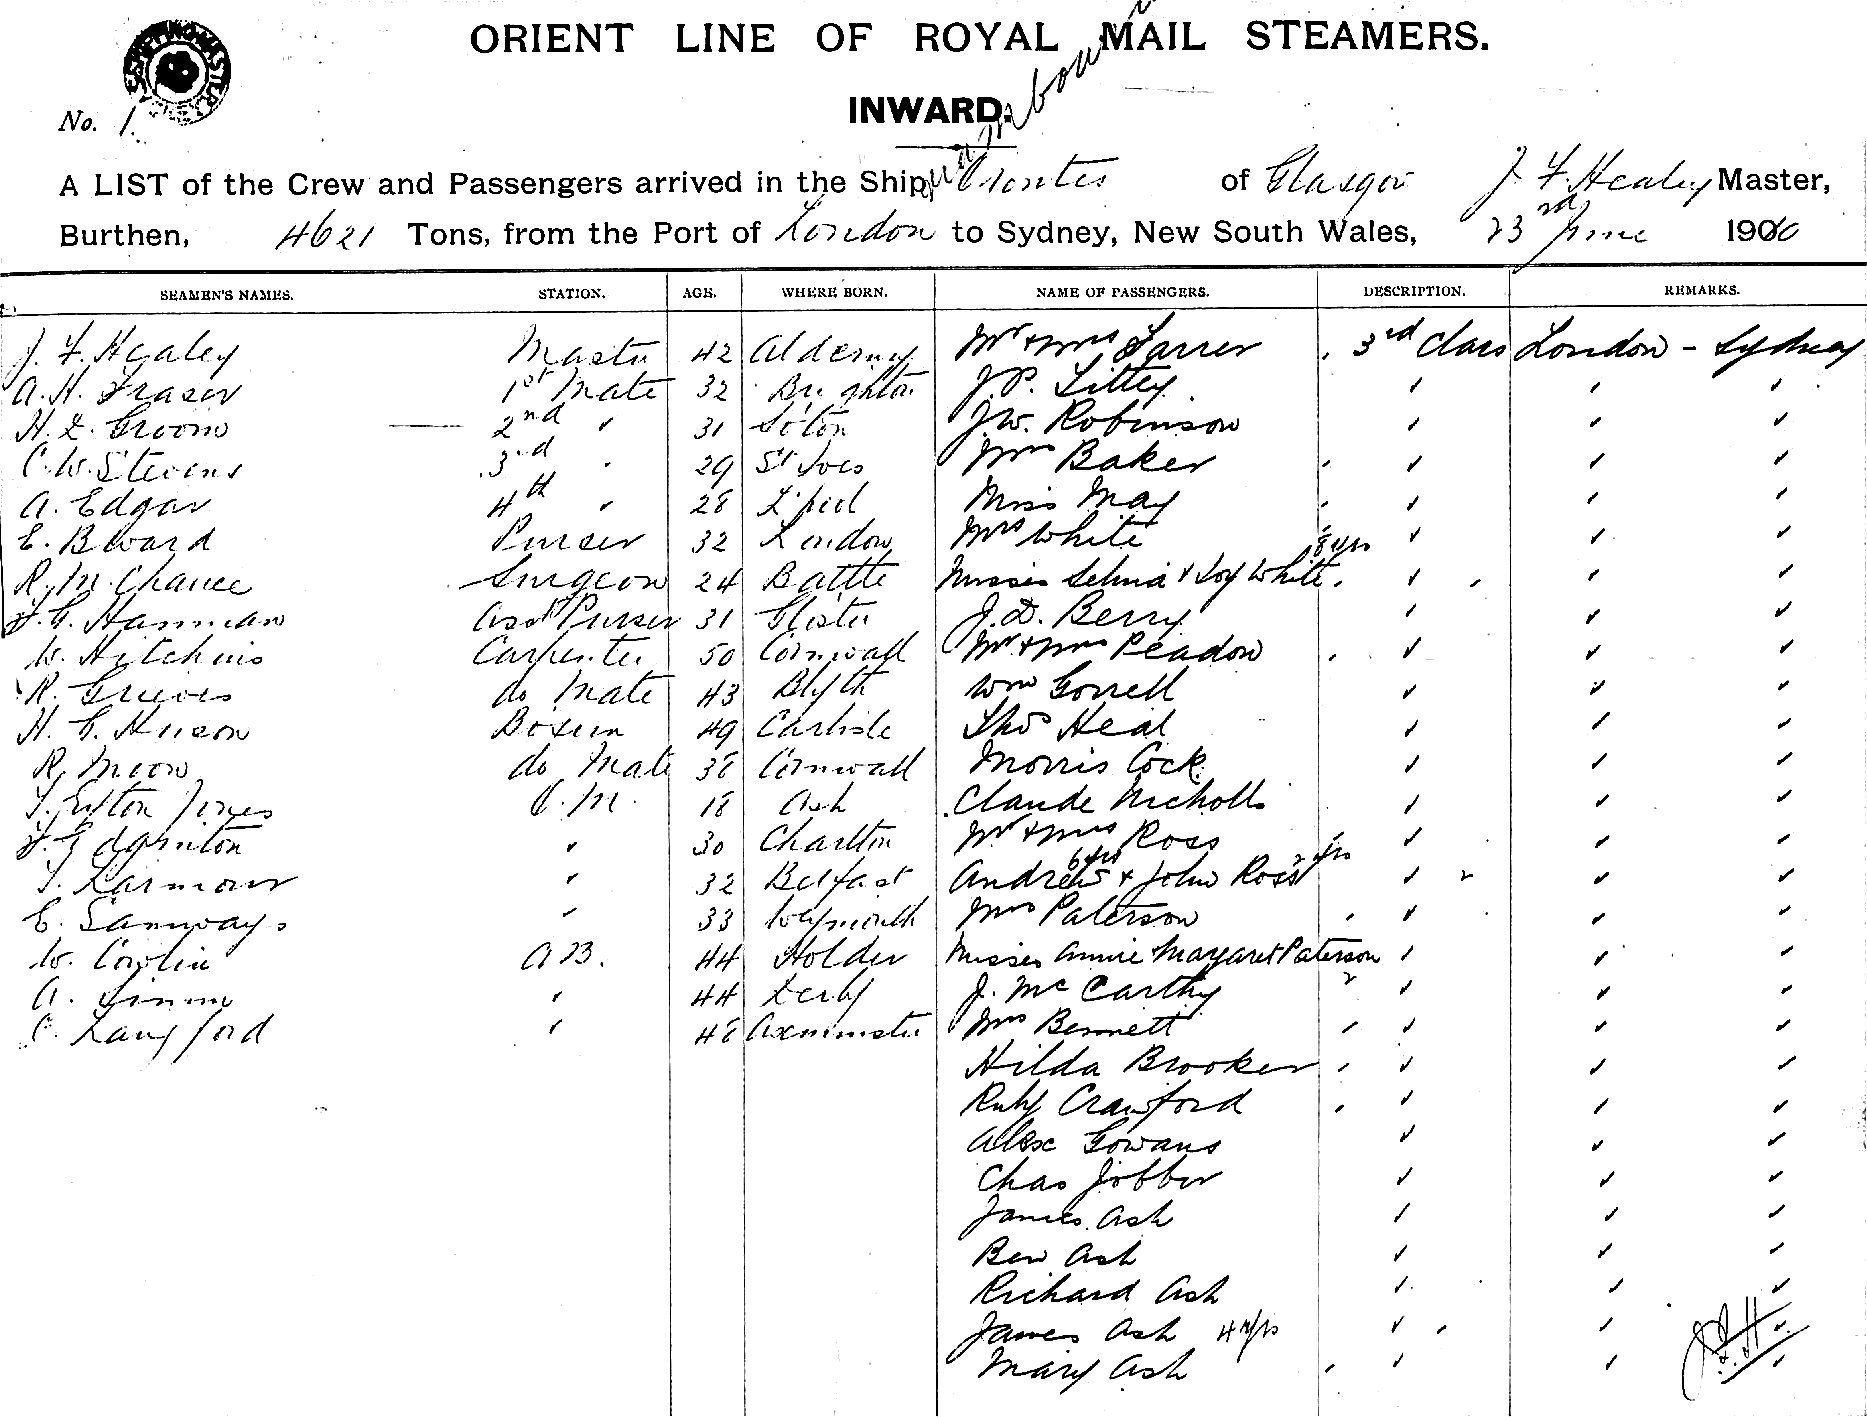 ORIENT LINE OF ROYAL MAIL STEAMERS.
INWARD.
No. 1.
A LIST of the Crew and Passengers arrived in the Ship Orontes of Glasgow J. F. Healey Master,
Burthen, 4621 Tons, from the Port of London to Sydney, New South Wales, 23rd June 1900
SEAMEN'S NAMES. STATION. AGE. WHERE BORN. NAME OF PASSENGERS. DESCRIPTION. REMARKS.
J. F. Healey Master 42 Alderney Mr & Mrs Farrer 3rd Class London - Sydney
A. H. Fraser 1st Mate 32 Brighton J. P. Littey
H. L. Groom 2nd " 31 So'ton J. W. Robinson
C. W. Stevens 3rd " 29 St Ives Mrs Baker
A. Edgar 4th " 28 L'pool Miss May
E. B. Ward Purser 32 London Mrs White
R. M. Chance Surgeon 24 Battle Misses Selma & Joy White 8 yrs
F. G. Hannan Asst Purser 31 Gloster J. D. Berry
W. Hitchins Carpenter 50 Cornwall Mr & Mrs Peadon
R. Grieves do Mate 43 Blyth Wm Gorrell
H. C. Huson Bosun 49 Carlisle Thos Heal
R. Moon do Mate 38 Cornwall Morris Cock
Jones Q. M. 18 Ash Claude Nicholls
F. Edginton " 30 Charlton Mr & Mrs Ross
T. Larmour " 32 Belfast Andrew 6 yrs & John Ross 2 yrs
E. Samways " 33 Weymouth Mrs Paterson
W. Cowlin A B. 44 Holder Misses Annie Margaret Paterson
A. Simms " 44 Derby J. McCarthy
C. Langford " 48 Axminster Mrs Bennett
Hilda Brooker
Ruby Crawford
Alex Gowans
Chas Jobber
James Ash
Ben Ash
Richard Ash
James Ash 4 yrs
Mary Ash